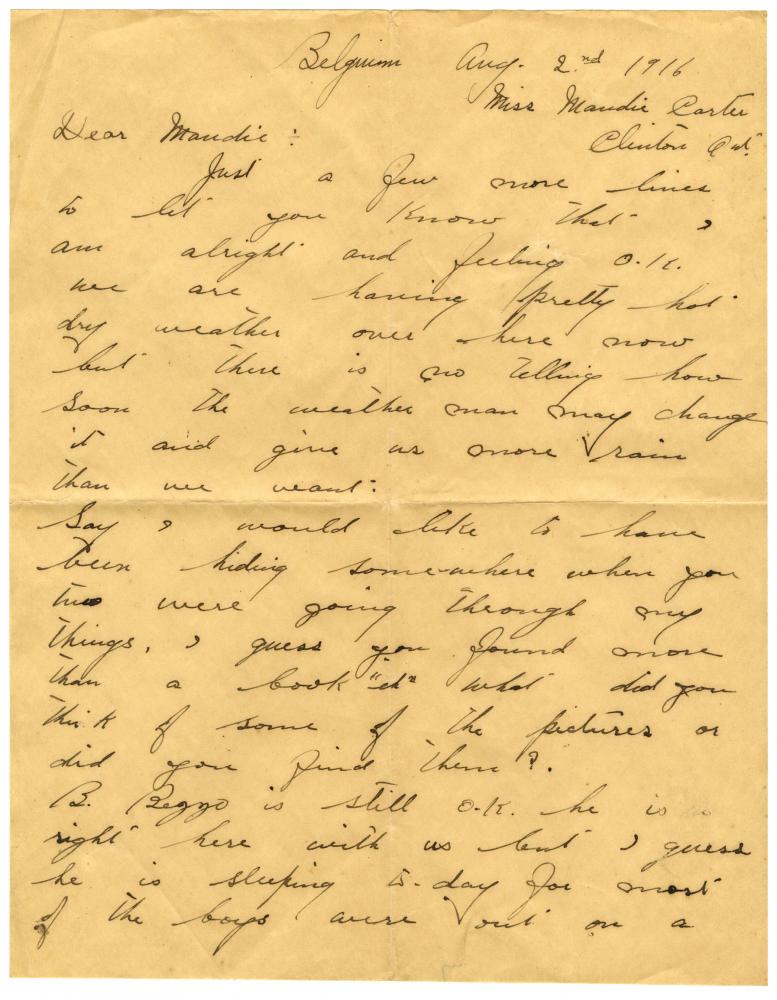 Belgium Aug. 2nd 1916
Miss Maudie Carter
Clinton Ont.
Dear Maudie:
Just a few more lines
to let you know that I
am alright and feeling O.K.
we are having pretty hot
dry weather over here now
but there is no telling how
soon the weather man may change
it and give us more rain
than we want.
Say I would like to have
been hiding somewhere when you
two were going through my
things, I guess you found more
than a book "eh" what did you
think of some of the pictures or
did you find them?.
B. is still O.K. he is
right here with us but I guess
he is sleeping to-day for most
of the boys were out on a